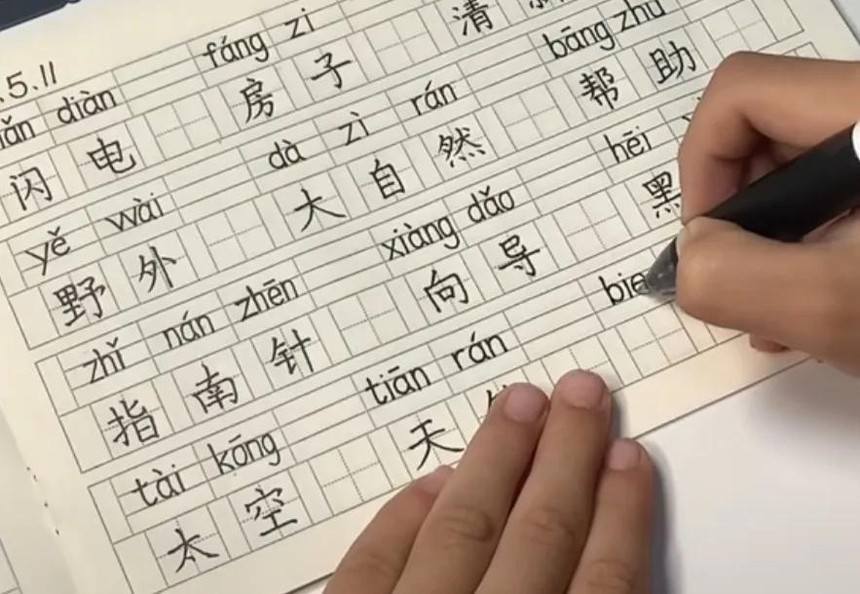 .5.11
fáng zi
ǎn diàn
房子 清
bāng zhù
闪电
dà zì rán
帮助
yě wài
大自然
hēi
野外
xiàng dǎo
黑
zhǐ nán zhēn
向导
bie
指南针
tiān rán
tài kōng
天
太空